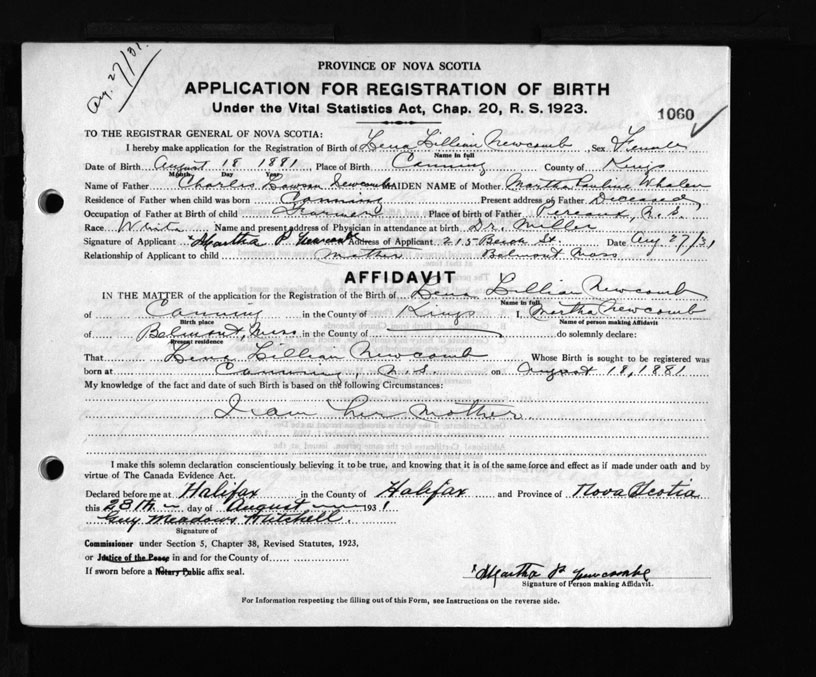 Aug. 27/31.
PROVINCE OF NOVA SCOTIA
APPLICATION FOR REGISTRATION OF BIRTH
Under the Vital Statistics Act, Chap. 20, R. S. 1923.
1060
TO THE REGISTRAR GENERAL OF NOVA SCOTIA:
I hereby make application for the Registration of Birth of Lena Lillian Newcomb, Sex Female
Name in full
Date of Birth August 18 1881 Place of Birth Canning County of Kings
Month Day Year
Name of Father Charles Lawson Newcomb MAIDEN NAME of Mother Martha Pauline Whalen
Residence of Father when child was born Canning Present address of Father Diceased
Occupation of Father at Birth of child Farmer Place of birth of Father Pereaux, N. S.
Race White Name and present address of Physician in attendance at birth Dr. Miller
Signature of Applicant Martha P Newcombe Address of Applicant 215 Beech St. Date Aug 27/31
Relationship of Applicant to child Mother Belmont Mass
AFFIDAVIT
IN THE MATTER of the application for the Registration of the Birth of Lena Lillian Newcomb
Name in full
of Canning in the County of Kings I, Martha Newcomb
Birth place Name of person making Affidavit
of Belmont, Mass in the County of do solemnly declare:
Present residence
That Lena Lillian Newcomb Whose Birth is sought to be registered was
born at Canning, N. S. on August 18, 1881
My knowledge of the fact and date of such Birth is based on the following Circumstances:
I am her mother.
I make this solemn declaration conscientiously believing it to be true, and knowing that it is of the same force and effect as if made under oath and by
virtue of The Canada Evidence Act.
Declared before me at Halifax in the County of Halifax and Province of Nova Scotia
this 28th day of August 1931
Guy Meadows Mitchell
Signature of
Commissioner under Section 5, Chapter 38, Revised Statutes, 1923,
or Justice of the Peace in and for the County of
If sworn before a Notary Public affix seal.
Martha P Newcombe
Signature of Person making Affidavit.
For Information respecting the filling out of this Form, see Instructions on the reverse side.